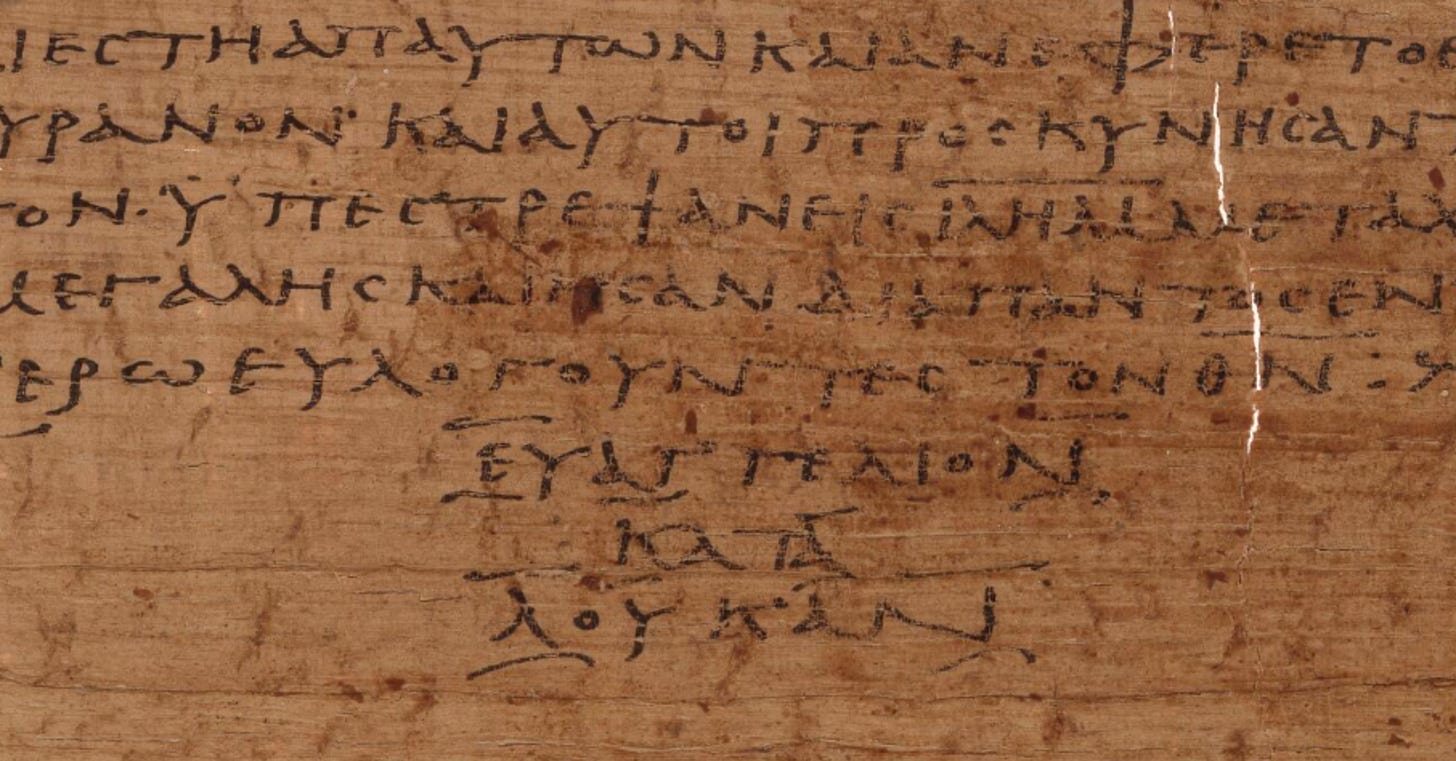 ΙΕϹΤΗΑΠΑΥΤΩΝΚΑΙΑΝΕΦΕΡΕΤΟΕ
ΥΡΑΝΟΝ· ΚΑΙΑΥΤΟΙΠΡΟϹΚΥΝΗϹΑΝΤ
ΤΟΝ·ΫΠΕϹΤΡΕΨΑΝΕΙϹΙ̅Λ̅Η̅Μ̅ΜΕΤΑΧ
ΜΕΓΑΛΗϹΚΑΙΗϹΑΝΔΙΑΠΑΝΤΟϹΕΝ
ΕΡΩΕΥΛΟΓΟΥΝΤΕϹΤΟΝΘ̅Ν̅·
ΕΥΑΓΓΕΛΙΟΝ
ΚΑΤΑ
ΛΟΥΚΑΝ